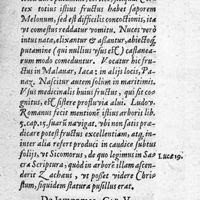 tex totus istius fructus habet saporem
Melonum, sed est difficilis concoctionis, ita
vt comestus reddatur vomitu. Nuces verò
intus natæ, elixantur & assantur, abiectoq́;
putamine (qui nullius vsus est) castanea-
rum modo comeduntur. Vocatur hic fru-
ctus in Malauar, Iaca: in alijs locis, Pa-
naz. Nascitur autem solùm in maritimis.
Vsus medicinalis huius fructus, qui co-
gnitus, est sistere profluuia alui. Ludou.
Romanus fecit mentionem istius arboris lib.
5. cap. 15. suarū nauigat. vbi non satis præ-
dicare potest fructus excellentiam, atq; in-
ter alia refert produci in caudice subtus
folijs, vt Sicomorus, de quo legimus in Sa-
cra Scriptura, quòd in arborē illam ascen-
derit Zachæus, vt posset videre Chri- Lucæ 19.
stum, siquidem statura pusillus erat.